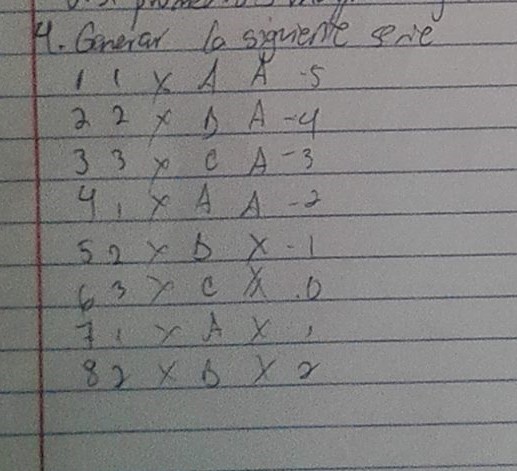 4. Generar la siguiente serie
1 1 X A A -5
2 2 X B A -4
3 3 X C A -3
4 1 X A A -2
5 2 X B X -1
6 3 X C X 0
7 1 X A X 1
8 2 X B X 2